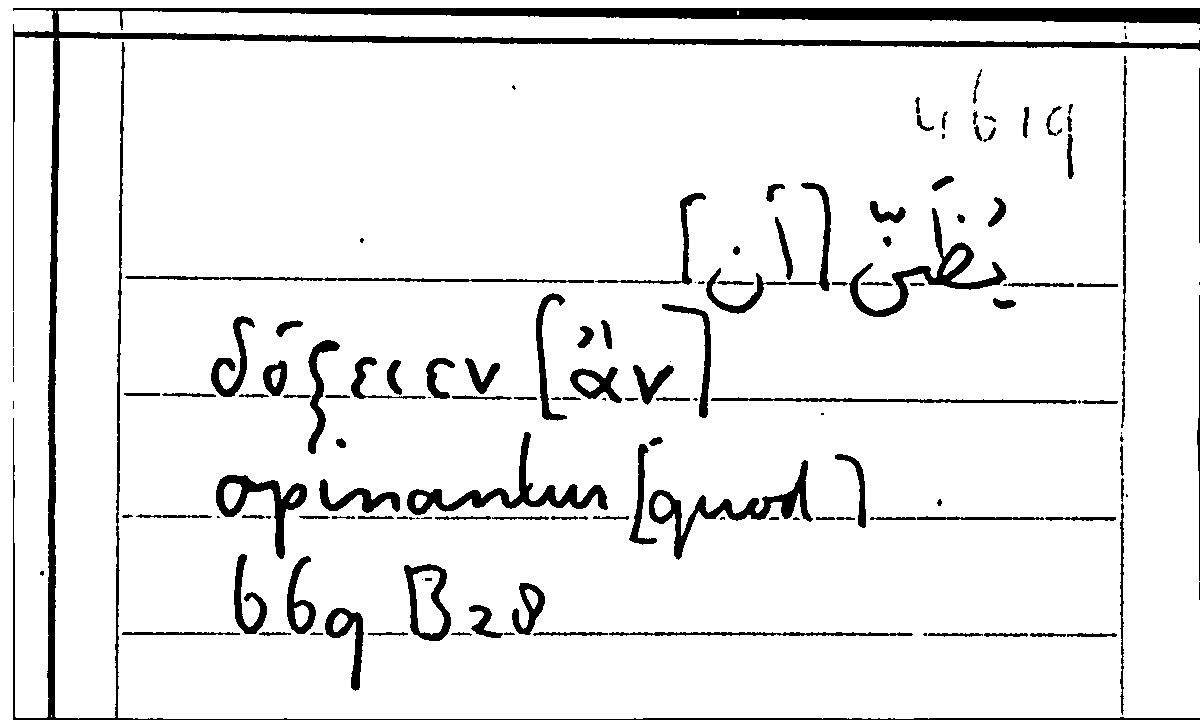 4619
يُظَنّ [أن]
δόξειεν [ἄν]
opinantur [quod]
669 B28